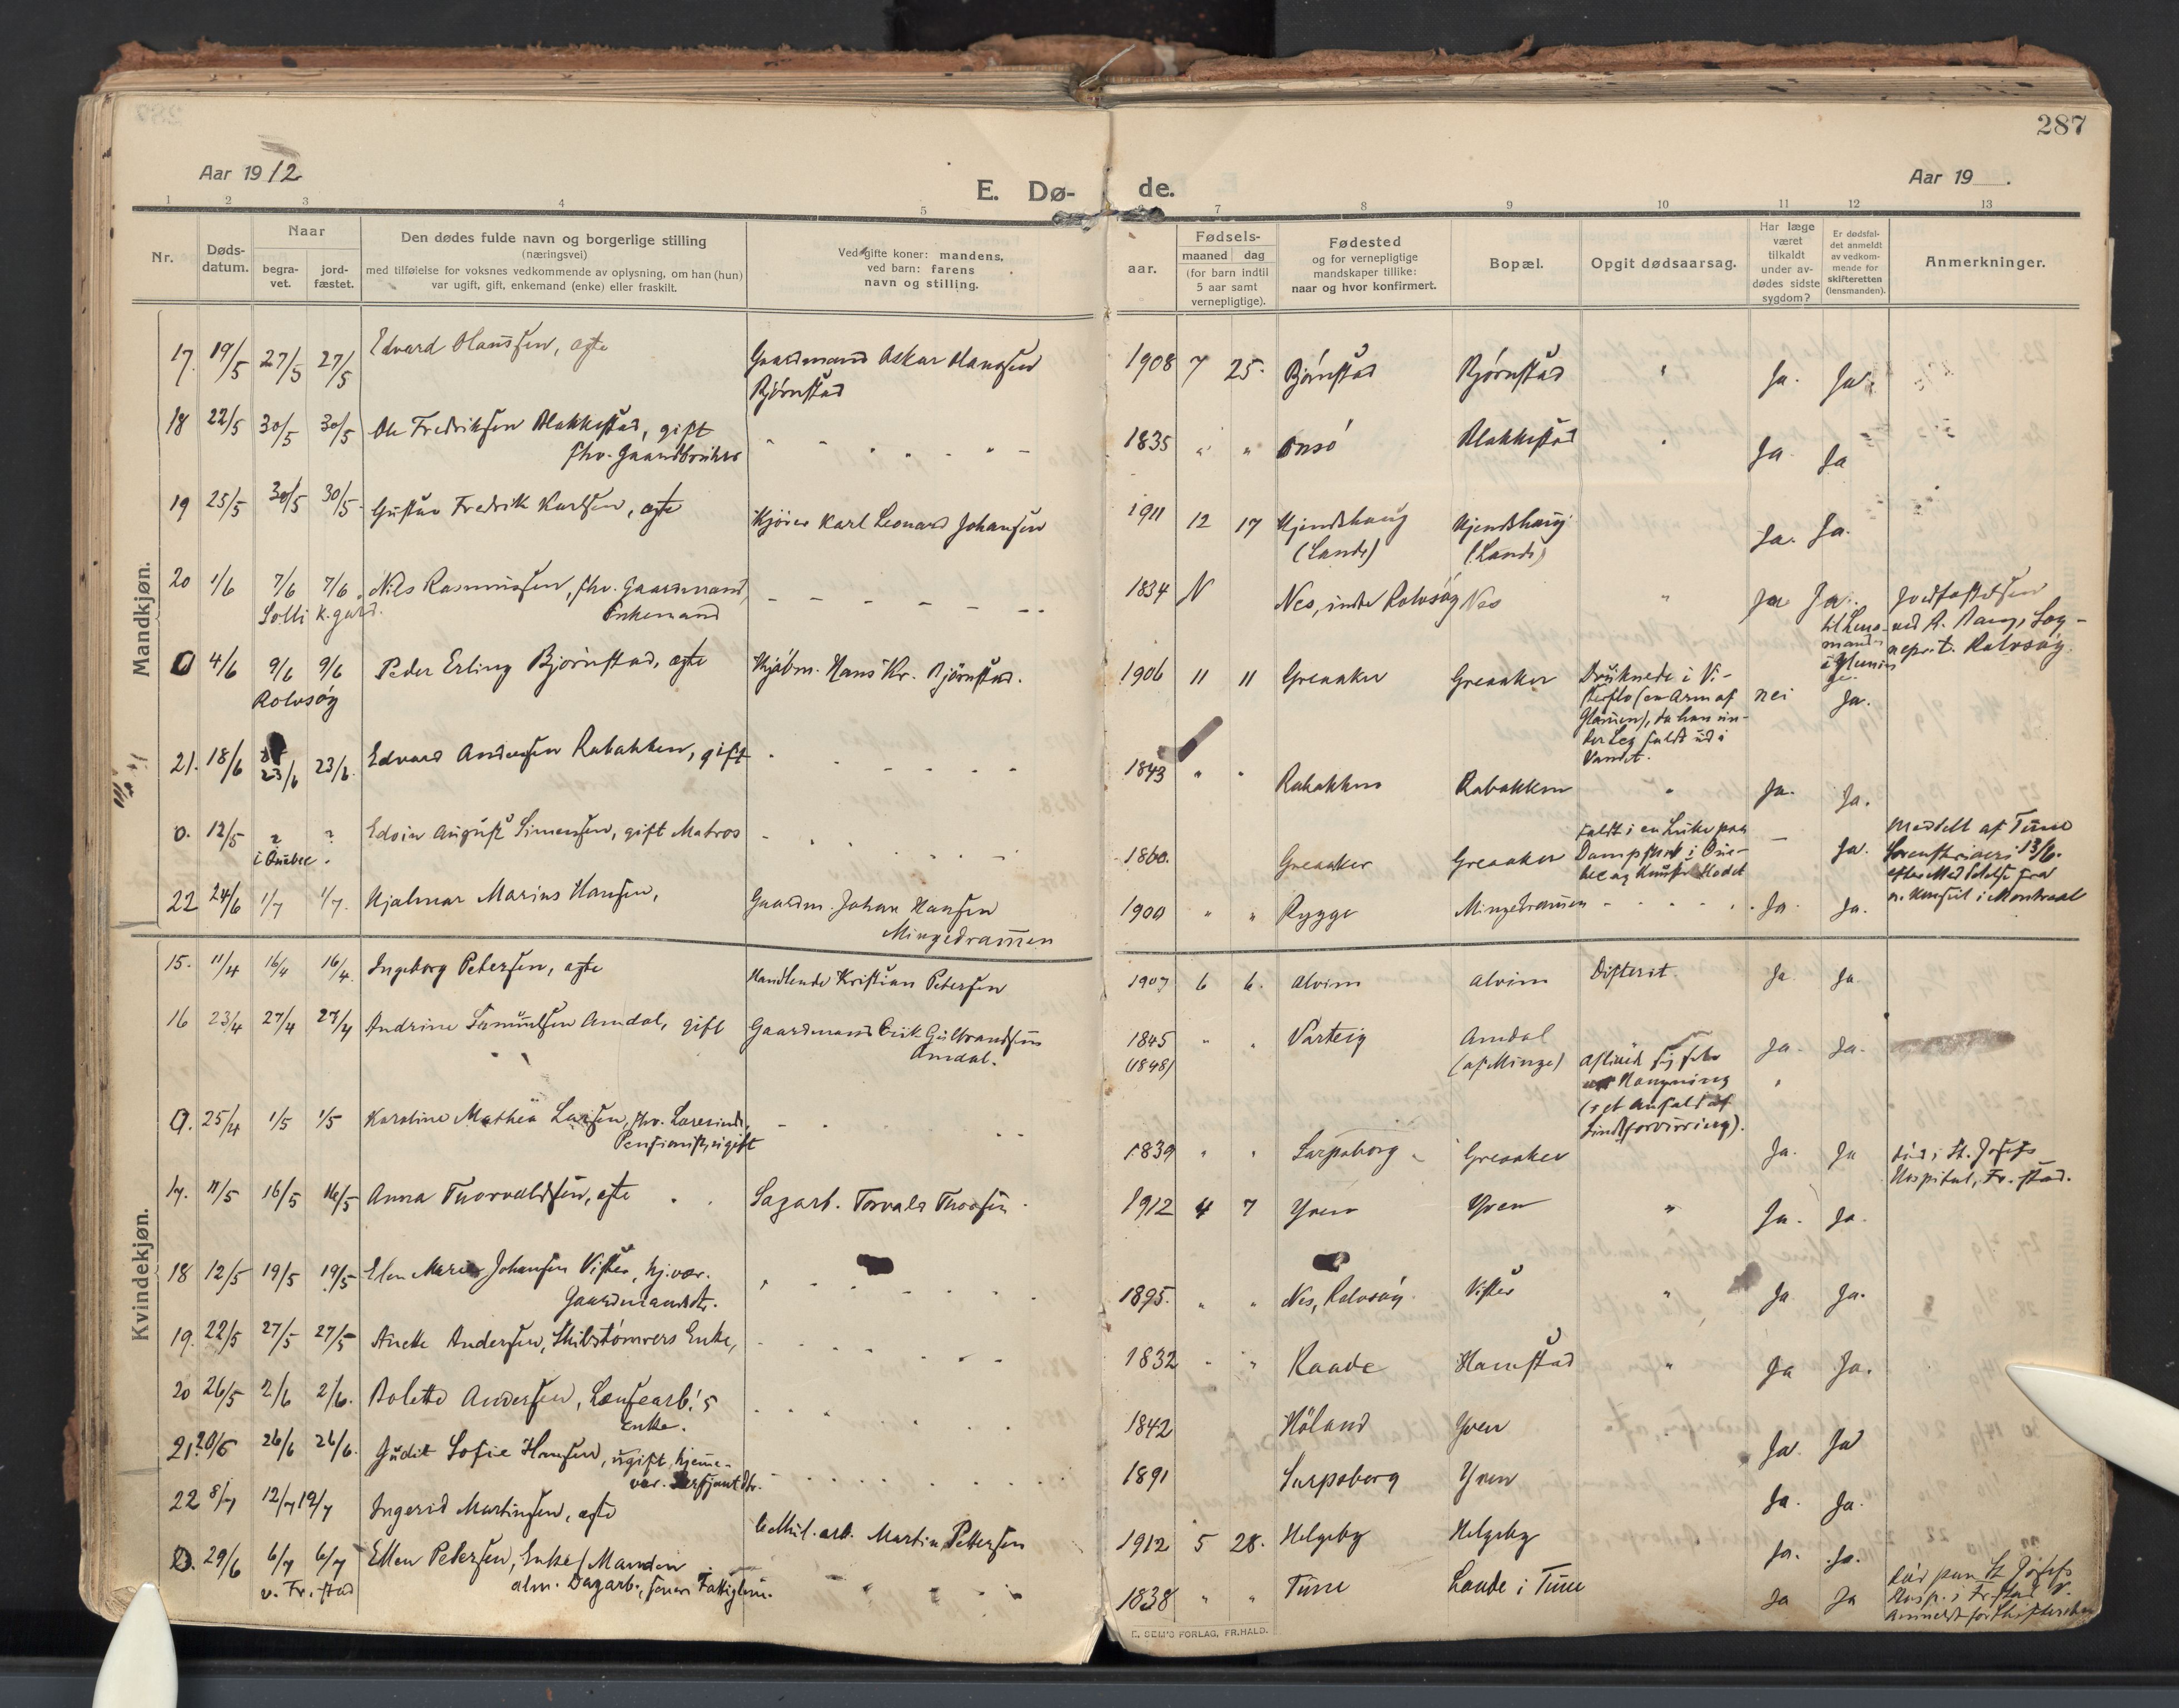 287
Aar 1912
Aar 19
E. Dø- de.
1 2 3 4 5 6 7 8 9 10 11 12 13
Nr.
Døds-
datum.
Naar
begra-
vet.
jord-
fæstet.
Den dødes fulde navn og borgerlige stilling
(næringsvei)
med tilføielse for voksnes vedkommende av oplysning, om han (hun)
var ugift, gift, enkemand (enke) eller fraskilt.
Ved gifte koner: mandens,
ved barn: farens
navn og stilling.
aar.
Fødsels-
maaned dag
(for barn indtil
5 aar samt
vernepligtige).
Fødested
og for vernepligtige
mandskaper tillike:
naar og hvor konfirmert.
Bopæl.
Opgit dødsaarsag.
Har læge
været
tilkaldt
under av-
dødes sidste
sygdom?
Er dødsfal-
det anmeldt
av vedkom-
mende for
skifteretten
(lensmanden).
Anmerkninger.
Mandkjøn.
17. 19/5 27/5 27/5 Edvard Hanssen, ægte Gaardmand Oskar Hanssen 1908 7 25. Bjørnstad Bjørnstad " Ja. Ja.
Bjørnstad
18 22/5 30/5 30/5 Ole Fredriksen Blakkestad, gift 1835 " " Onsø Blakkestad " Ja. Ja
fhv. Gaardbruker
19 25/5 30/5 30/5 Gustav Fredrik Karlsen, ægte Kjører Karl Leonard Johansen 1911 12 17 Kjendshaug Kjendshaug Ja. Ja.
(Lande) (Lande)
20 1/6 7/6 7/6 Nils Rasmussen, fhv. Gaardmand, 1834 N Nes, indre Rolvsøy Nes " Ja Ja. Jordfæstelsen
Solli k.gard. Enkemand til Lens-
mand i Glemminge
ved R. Sog-
nepr. t. Rolvsøy.
0 4/6 9/6 9/6 Peder Erling Bjørnstad, ægte Kjøbm. Hans Kr. Bjørnstad. 1906 11 11 Greaaker Greaaker Druknede i Vi- nei Ja.
Rolvsøy
sterflo (en Arm af
Glommen), da han un-
der Leg faldt ud i
Vandet.
21. 18/6 23/6 23/6 Edvard Andersen Rabakken, gift 1843 " " Rabakken Rabakken " Ja. Ja.
0. 12/5 ? ? Edvin August Simensen, gift Matros 1860. Greaaker Greaaker Faldt i en Luke paa — Ja. Meddelt af Tune
i Quebec.
Dampskib i Que-
bec og knuste Hodet
Sorenskriveri 13/6.
efter Meddelelse fra
n. Konsul i Montreal
22 24/6 1/7 1/7. Hjalmar Marius Hansen, Gaardm. Johan Hansen 1900 " " Rygge Mingedrammen Ja. Ja.
Mingedrammen
Kvindekjøn.
15. 11/4 16/4 16/4. Ingeborg Petersen, ægte Handlende Kristian Petersen 1907 6 6. Alvim Alvim Difterit. Ja. Ja.
16 23/4 27/4 27/4 Andrine Samuelsen Amdal, gift Gaardmand Erik Gulbrandsen 1845 " " Varteig Amdal Ja. Ja.
Amdal. (1848) (af Minge) aflivede sig selv
Hængning
(i et Anfald af
Sindsforvirring).
0. 25/4 1/5 1/5 Karoline Mathea Larsen, fhv. Lærerinde, 1839 " " Sarpsborg Greaaker Ja. Ja død i St. Josefs
Pensionist, ugift Hospital, Fr.stad.
17. 11/5 16/5 16/5 Anna Thorvaldsen, ægte Sagarb. Torvald Thorsen 1912 4 7 Yven Yven " Ja. Ja.
18 12/5 19/5 19/5 Elen Marie Johansen Vister, hj.vær. 1895. " " Nes, Rolvsøy Vister " Ja Ja.
Gaardmandsdtr.
19. 22/5 27/5 27/5 Anette Andersen, Skibstømrers Enke, 1832 " " Raade Hamstad " Ja Ja.
20 26/5 2/6 2/6. Bolette Andersen, Lænsearb.'s 1842 Høland Yven Ja. Ja
Enke.
21. 20/6 26/6 26/6. Judit Sofie Hansen, ugift, hjeme- 1891 Sarpsborg Yven Ja. Ja.
vær. Sersjantdtr.
22 8/7 12/7 12/7 Ingerid Martinsen, ægte Martin Pettersen 1912 5 28. Helgeby Helgeby Ja. Ja.
0. 29/6 6/7 6/7 Ellen Petersen, Enke (Manden 1838 " " Tune Lande i Tune Ja Ja død paa St. Josefs
v. Fr.stad alm. Dagarb., Fattiglem. Hosp. i Fr.stad
E. SEM'S FORLAG, FR.HALD.